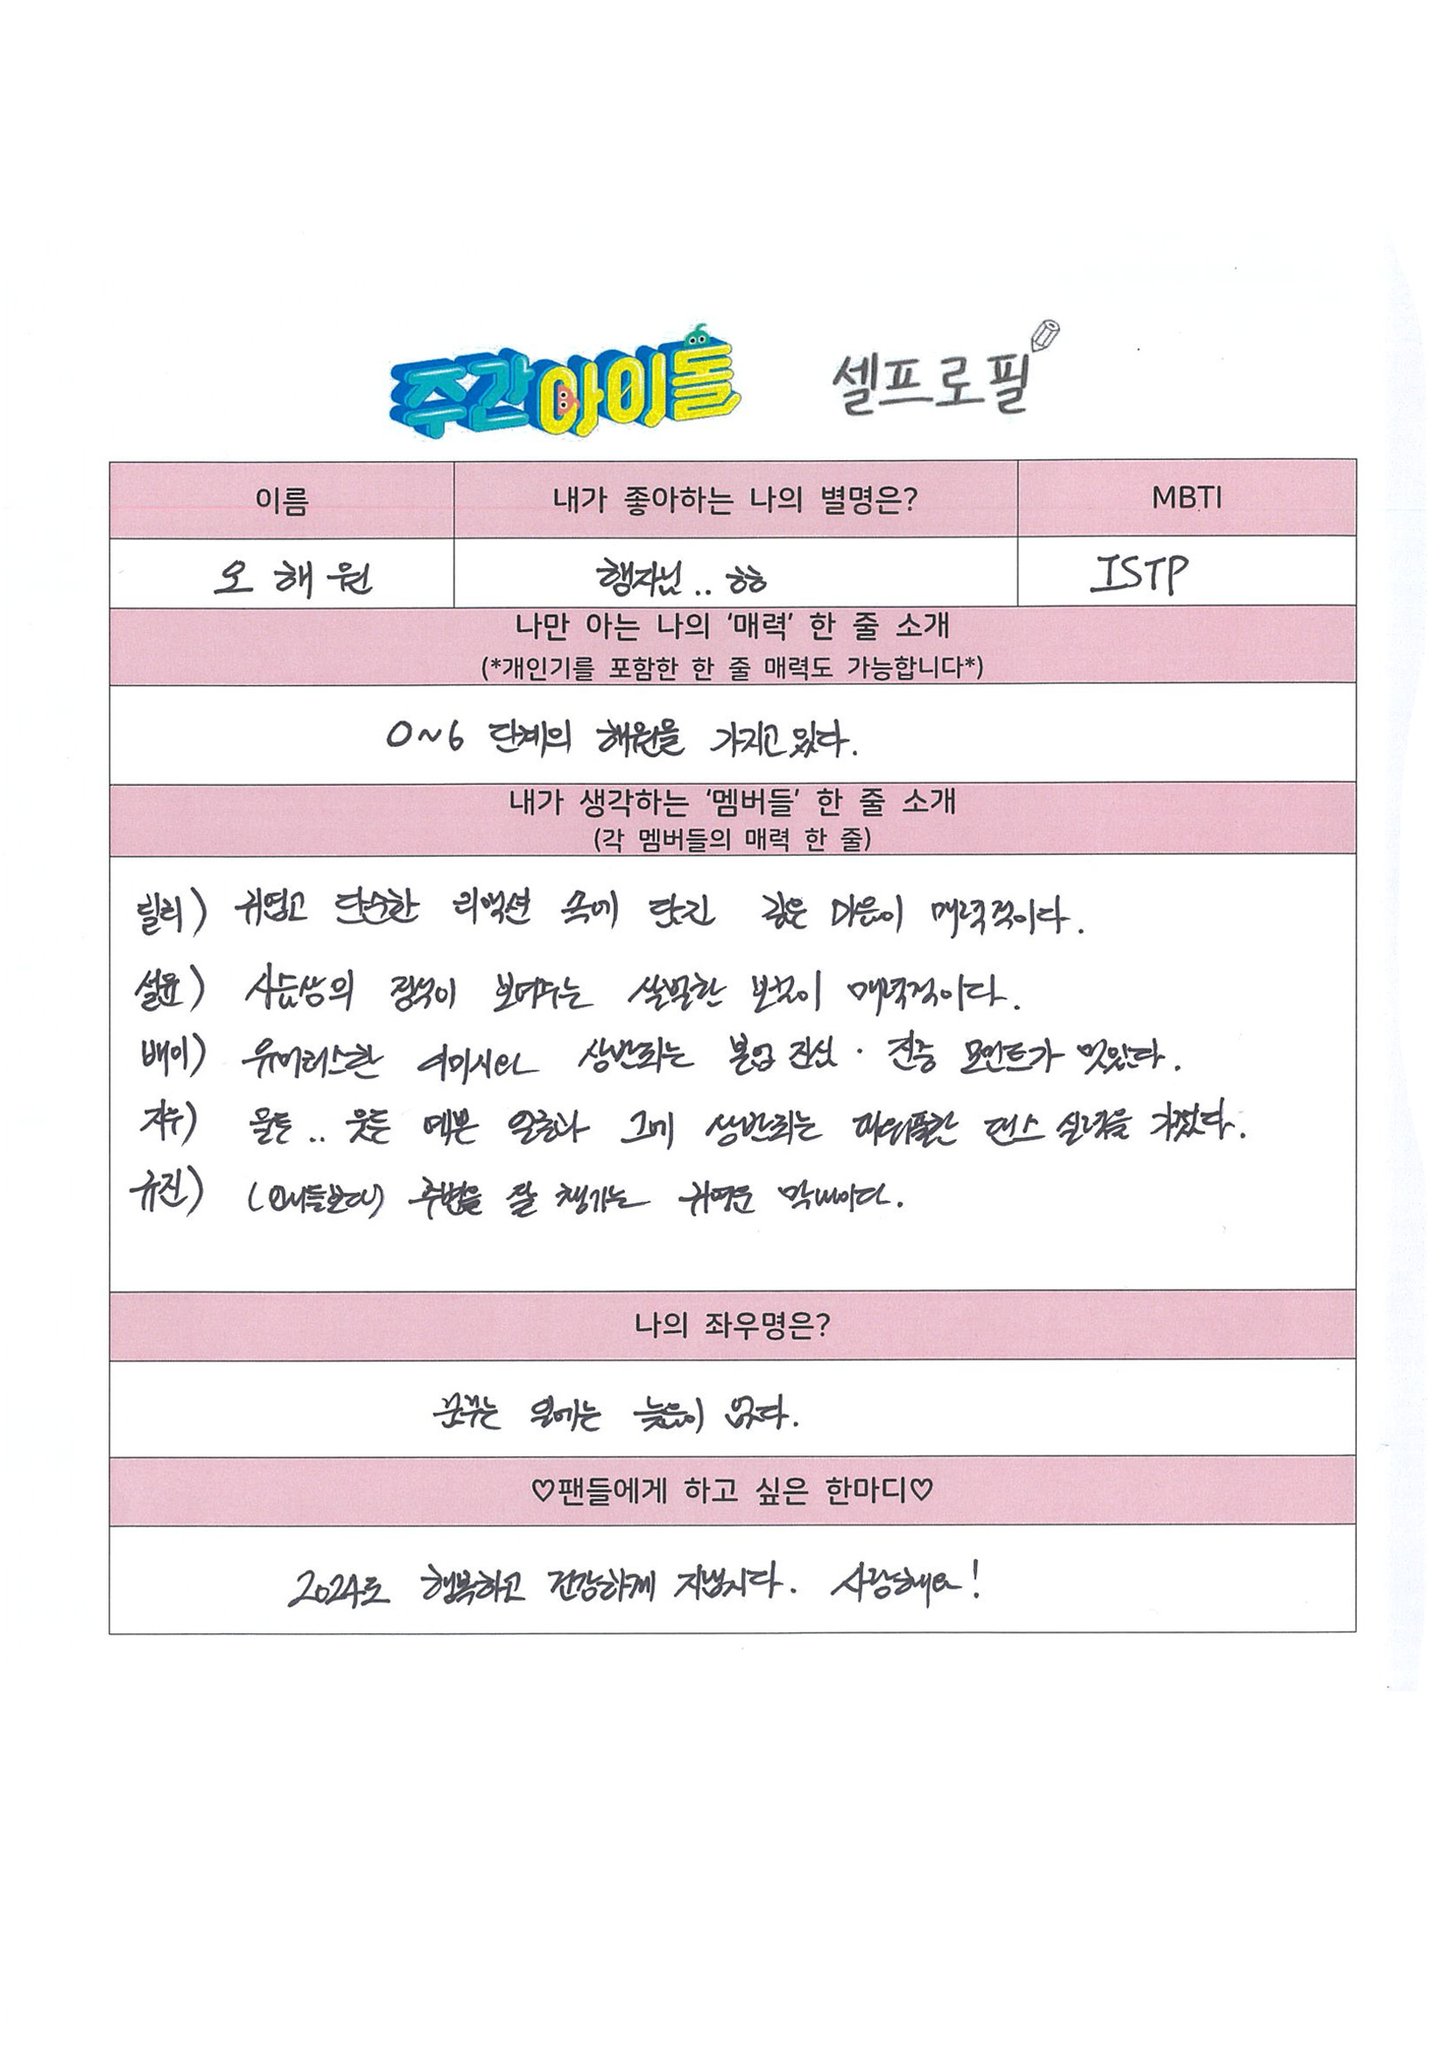 주간아이돌 셀프로필
이름 내가 좋아하는 나의 별명은? MBTI
오해원 행자님.. ㅎㅎ ISTP
나만 아는 나의 '매력' 한 줄 소개
(*개인기를 포함한 한 줄 매력도 가능합니다*)
0~6 단계의 해원을 가지고 있다.
내가 생각하는 '멤버들' 한 줄 소개
(각 멤버들의 매력 한 줄)
릴리) 귀엽고 단순한 리액션 속에 담긴 깊은 마음이 매력적이다.
설윤) 사슴상의 정석이 보여주는 살벌한 보컬이 매력적이다.
배이) 유머러스한 여미새와 상반되는 본업 진심 · 집중 모먼트가 멋있다.
지우) 울든.. 웃든 예쁜 얼굴과 그에 상반되는 파워풀한 댄스 실력을 가졌다.
규진) (언니들보다) 주변을 잘 챙기는 귀여운 막내이다.
나의 좌우명은?
꿈꾸는 일에는 늦음이 없다.
♡팬들에게 하고 싶은 한마디♡
2024도 행복하고 건강하게 지냅시다. 사랑해요!